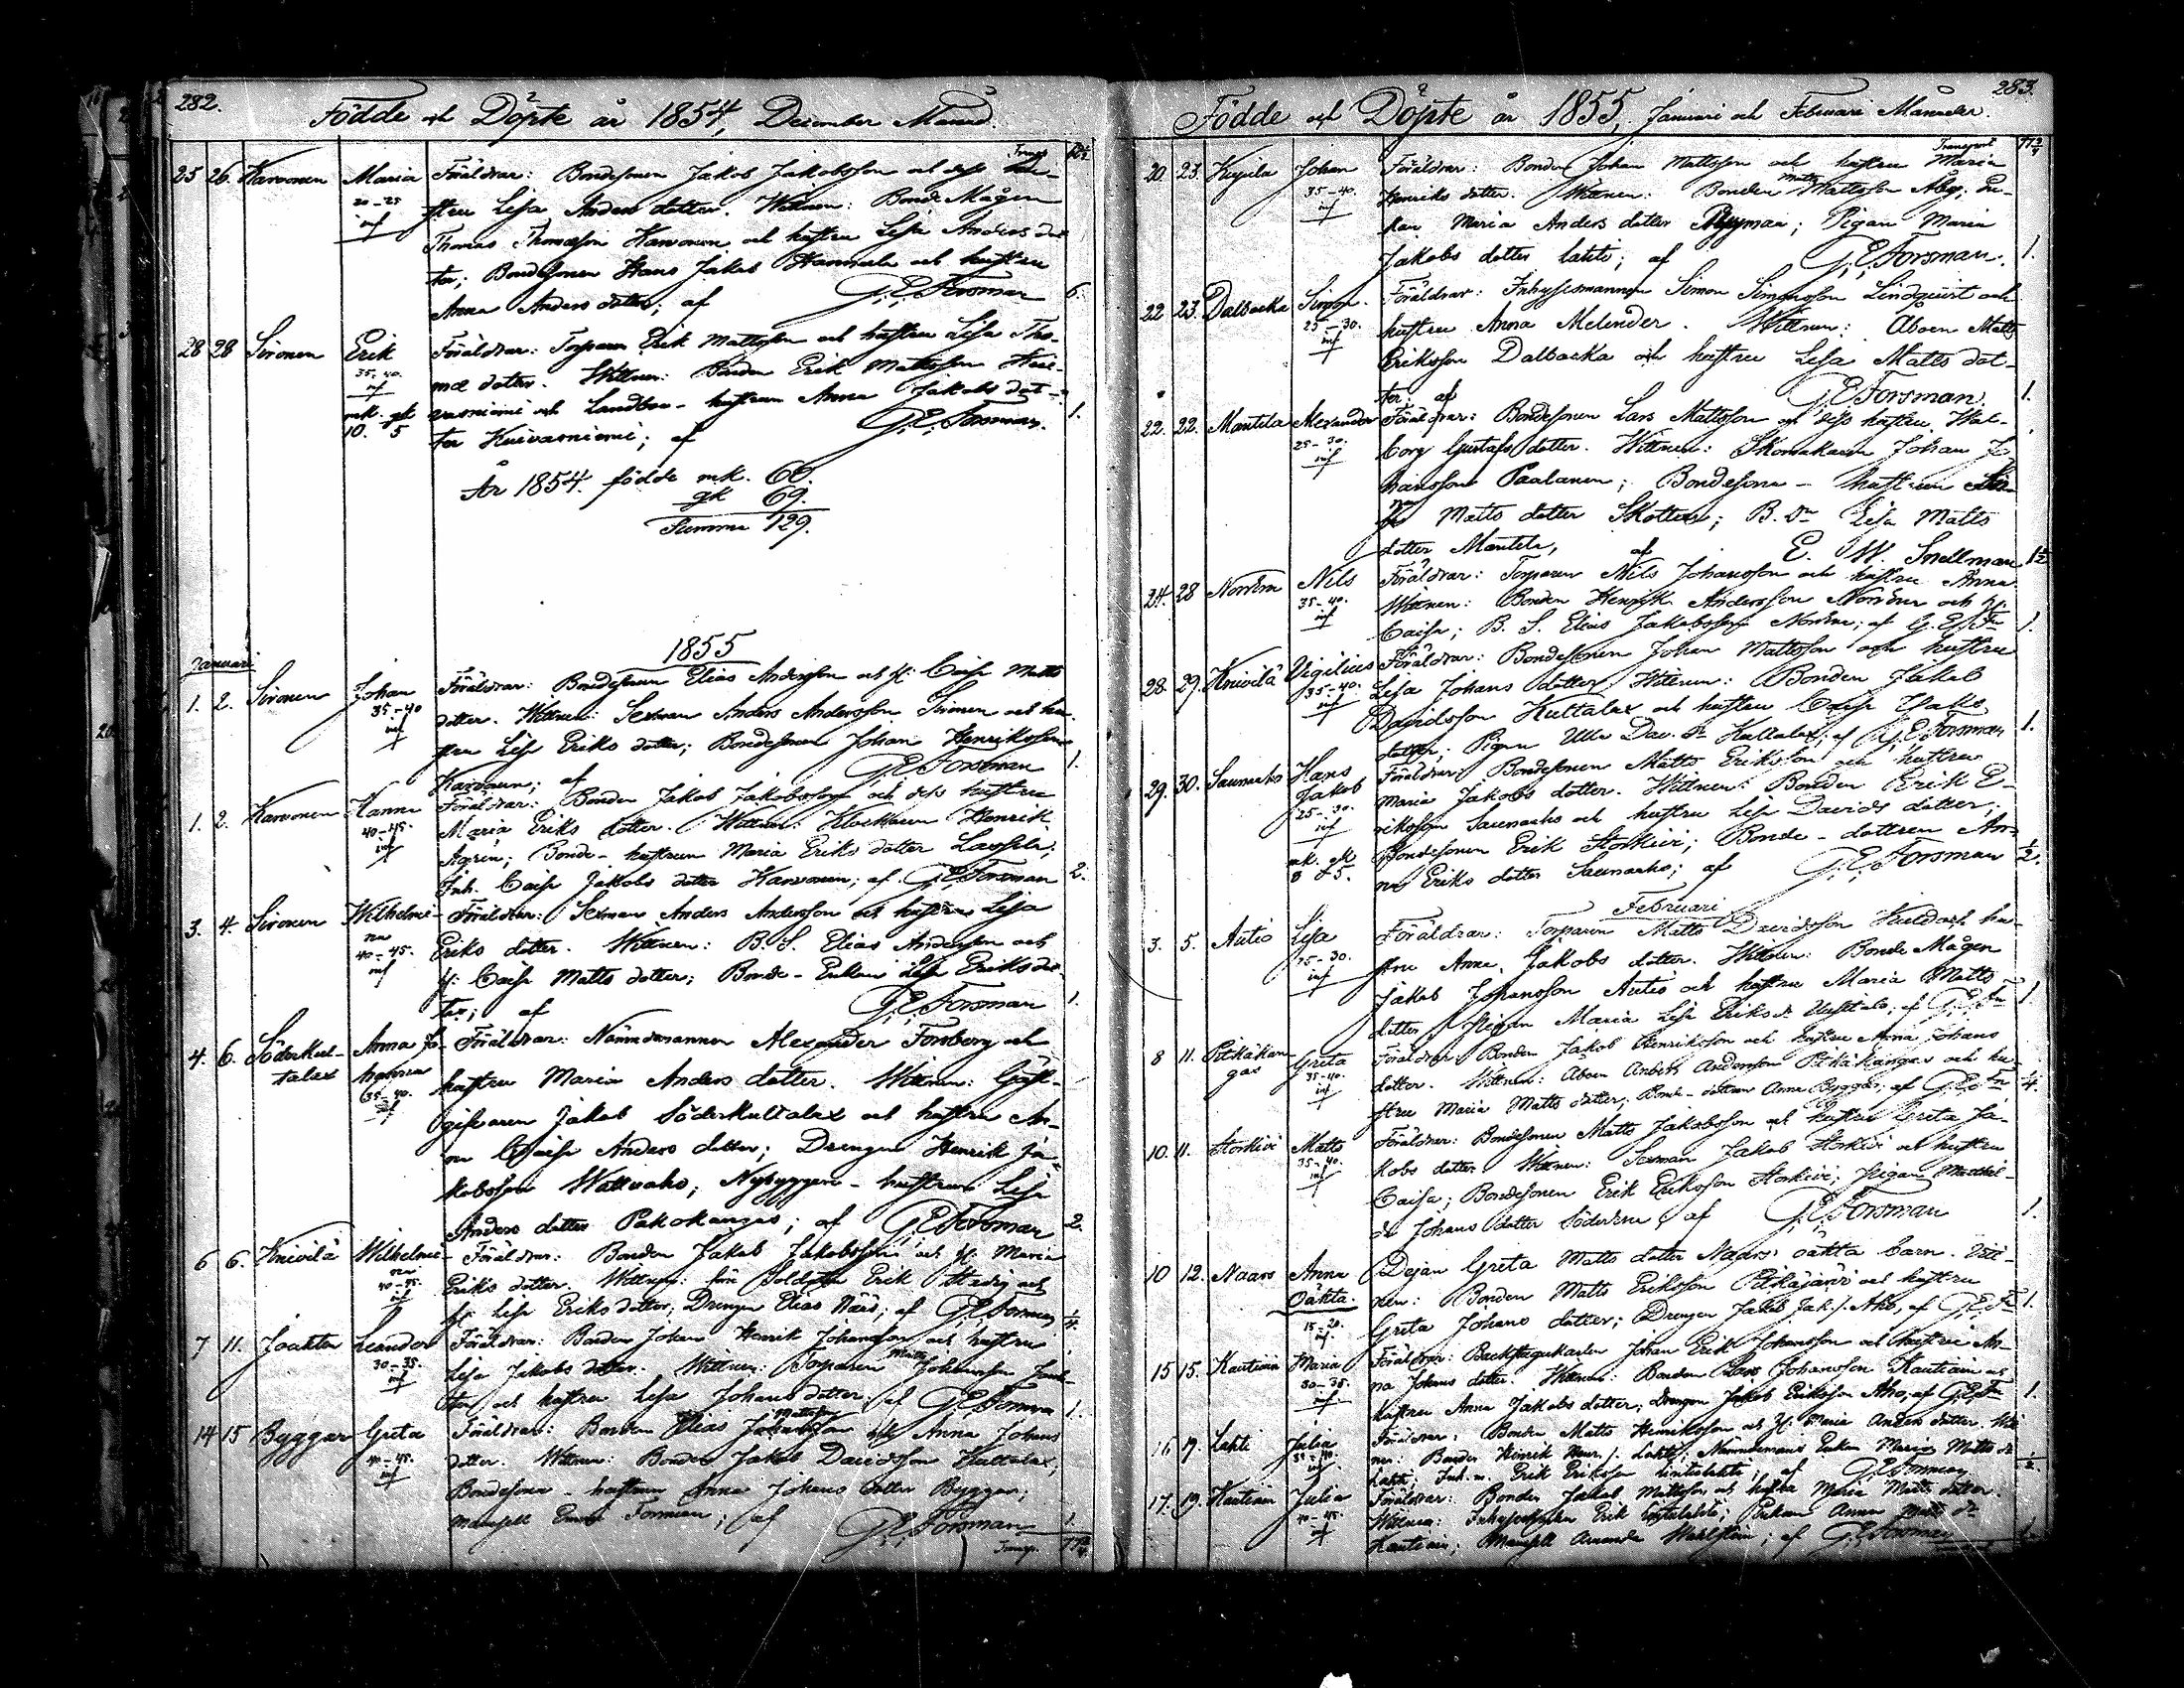 282.
Födde och Döpte år 1854, December Månad.
25 26. Karvonen Maria Föräldrar: Bondesonen Jakob Jakobsson och dess hu-
20-25 stru Lisa Anders dotter. Wittnen: Bonde Mågen
Thomas Thomasson Karvonen och hustru Lisa Anders dot
ter; Bondesonen Hans Jakob Hannula och hustru
Anna Anders dotter; af G. E. Forsman 6.
28 28 Sironen Erik Föräldrar: Torparen Erik Mattsson och hustru Lisa Tho-
35-40. mæ dotter. Wittnen: Bonden Erik Mattsson Kui-
mk. qk vasniemi och Landbo-hustrun Anna Jakobs dot-
10. 5 ter Kuivasniemi; af G. E. Forsman. 1.
År 1854. födde mk. 60.
qk 69.
Summa 129.
1855
Januari
1. 2. Sironen Johan Föräldrar: Bondesonen Elias Andersson och H. Caisa Matts
35-40 dotter. Wittnen: Sexman Anders Andersson Sironen och hu-
stru Lisa Eriks dotter; Bondesonen Johan Henriksson
Karvonen; af G. E. Forsman 1.
1. 2. Karvonen Hanna Föräldrar: Bonden Jakob Jakobsson och dess hustru
40-45. Maria Eriks dotter. Wittnen: Klockaren Henrik
Agrén; Bonde-hustrun Maria Eriks dotter Lassila;
Inh. Caisa Jakobs dotter Karvonen; af G. E. Forsman 2.
3. 4. Sironen Wilhelmi- Föräldrar: Sexman Anders Andersson och hustru Lisa
na Eriks dotter. Wittnen: B. S. Elias Andersson och
40-45. H. Caisa Matts dotter; Bonde-Enkan Lisa Eriks dot
ter; af G. E. Forsman 1.
4. 6. Söderkul- Anna Jo- Föräldrar: Nämndemannen Alexander Forsberg och
talax hanna hustru Maria Anders dotter. Wittnen: Gäst-
35-40. gifvaren Jakob Söderkultalax och hustru An-
na Caisa Anders dotter; Drengen Henrik Ja-
kobsson Wattuaho; Nybyggare-hustrun Lisa
Anders dotter Pakokangas; af G. E. Forsman 2.
6 6. Knivilä Wilhelmi- Föräldrar: Bonden Jakob Jakobsson och H. Maria
na Eriks dotter. Wittnen: förre Soldaten Erik
40-45. H. Lisa Eriks dotter; Drengen Elias; af G. E. Forsman 1/4.
7 11. Joakter Leander Föräldrar: Bonden Johan Henrik Johansson och hustru
30-35. Lisa Jakobs dotter. Wittnen: Torparen Matts Johansson
och hustru Lisa Johans dotter; af G. E. Forsman 1.
14 15 Byggar Greta Föräldrar: Bonden Elias Mattsson och Anna Johans
40-45. dotter. Wittnen: Bonden Jakob Davidsson Kultalax;
Bondesons-hustrun Anna Johans dotter Byggar;
Mamsell Emma Forsman; af G. E. Forsman 1.
Transp.
283.
Födde och Döpte år 1855, Januari och Februari Månader.
Transport
20 23. Kujala Johan Föräldrar: Bonden Johan Mattsson och hustru Maria
35-40. Henriks dotter. Wittnen: Bonden Matts Mattsson Åby; En-
kan Maria Anders dotter; Pigan Maria
Jakobs dotter Lahti; af G. E. Forsman. 1.
22 23. Dalbacka Simon. Föräldrar: Inhysesmannen Simon Simonsson Lindqvist och
25-30. hustru Anna Melender. Wittnen: Åboen Matts
Eriksson Dalbacka och hustru Lisa Matts dot-
ter; af G. E. Forsman. 1.
22. 22. Mantila Alexander Föräldrar: Bondesonen Lars Mattsson och dess hustru Wal-
25-30. borg Gustafs dotter. Wittnen: Skomakaren Johan Jo-
hansson Paalanen; Bondesons-hustrun
Matts dotter Skotters; B. Dr Lisa Matts
dotter Mantila, af E. W. Snellman 1 1/2
24. 28 Nils Föräldrar: Torparen Nils Johansson och hustru Anna
35-40. Wittnen: Bonden Henrik Andersson och H.
Caisa; B. S. Elias Jakobsson; af G. E. Fn 1.
28. 29. Knivilä Vigilius Föräldrar: Bondesonen Johan Mattsson och hustru
35-40. Lisa Johans dotter. Wittnen: Bonden Jakob
Davidsson Kultalax och hustru Caisa Jakobs
dotter; Pigan Ulla Dav. Dr Kultalax; af G. E. Forsman 1.
29. 30. Saunaaho Hans Föräldrar: Bondesonen Matts Eriksson och hustru
Jakob Maria Jakobs dotter. Wittnen: Bonden Erik E-
25-30. riksson Saunaaho och hustru Lisa Davids dotter;
mk. qk Bondesonen Erik Storkivi; Bonde-dottren An-
8 5. na Eriks dotter Saunaaho; af G. E. Forsman 1/2.
Februari
3. 5. Autio Lisa Föräldrar: Torparen Matts Davidsson och hu-
25-30. stru Anna Jakobs dotter. Wittnen: Bonde Mågen
Jakob Johansson Autio och hustru Maria Matts
dotter; Pigan Maria Lisa Eriks Dr; af G. E. Fn 1.
8 11. Pitkäkan- Greta Föräldrar: Bonden Jakob Henriksson och hustru Anna Johans
gas 35-40. dotter. Wittnen: Åboen Anders Andersson Pitkäkangas och hu-
stru Maria Matts dotter; Bonde-dottren Anna Byggar; af G. E. Fn 1/4.
10. 11. Storkivi Matts Föräldrar: Bondesonen Matts Jakobsson och hustru Greta Ja-
35-40. kobs dotter. Wittnen: Sexman Jakob Storkivi och hustru
Caisa; Bondesonen Erik Eriksson Storkivi; Pigan Mathil-
da Johans dotter; af G. E. Forsman 1.
10 12. Naars Anna Dejan Greta Matts dotter Naars' oäkta barn. Vitt-
Oäkta. nen: Bonden Matts Eriksson Pitkäjärvi och hustru
15-20. Greta Johans dotter; Drengen Jakob Jak. s. Aho, af G. E. Fn 1.
15 15. Kautiain Maria Föräldrar: Backstugukarlen Johan Erik Johansson och hustru An-
30-35. na Johans dotter. Wittnen: Bonden Lars Johansson Kautiain och
hustru Anna Jakobs dotter; Drengen Jakob Eriksson Aho, af G. E. Fn 1.
16 17. Lahti Julia Föräldrar: Bonden Matts Henriksson och H. Maria Anders dotter. Witt-
nen: Bonden Henrik Henr. s. Lahti; Nämndemans Enkan Maria Matts Dr
Lahti; Inh. m. Erik Eriksson; af G. E. Forsman 1/2.
17. 19. Kautiain Julia Föräldrar: Bonden Jakob Mattsson och hustru Maria Matts dotter.
40-45. Wittnen: Erik; Enkan Anna Matts Dr
Kautiain; Mamsell Amanda Wahlstein; af G. E. Forsman 1.